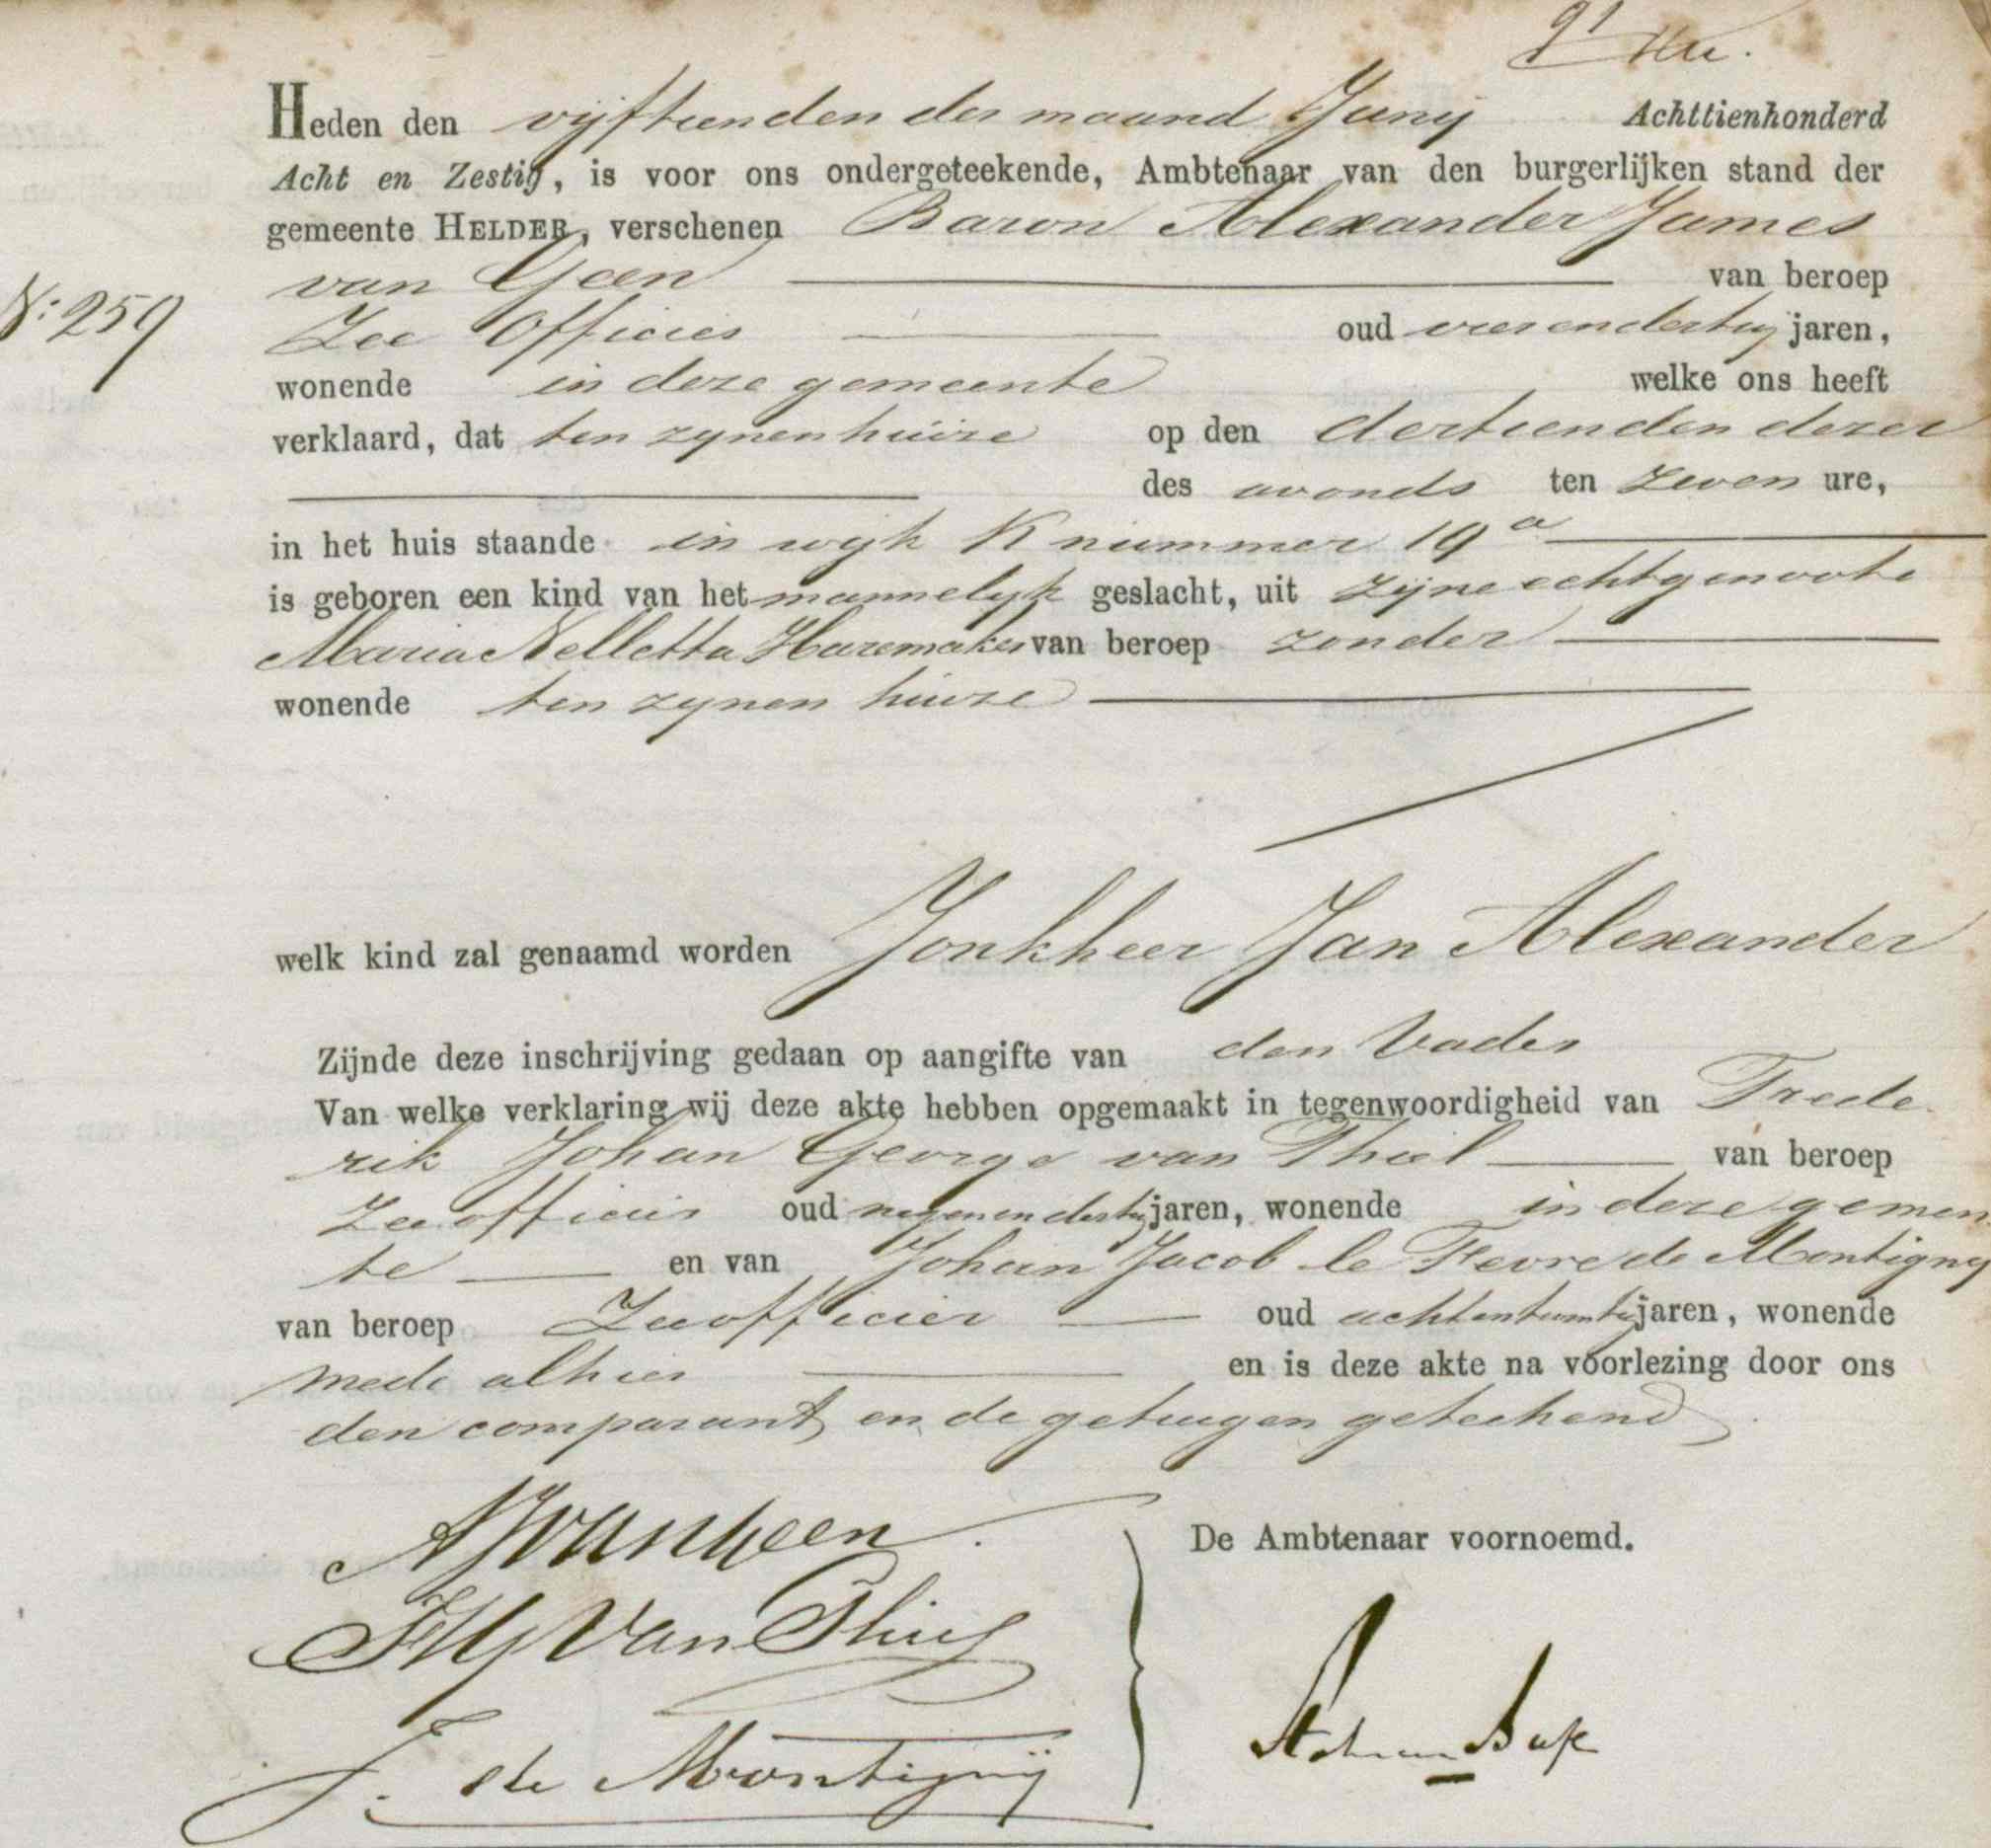 Heden den vijftienden der maand Junij Achttienhonderd
Acht en Zestig, is voor ons ondergeteekende, Ambtenaar van den burgerlijken stand der
gemeente HELDER, verschenen Baron Alexander James
van Geen van beroep
N: 259
Zee Officier oud vier en dertig jaren,
wonende in deze gemeente welke ons heeft
verklaard, dat ten zynen huize op den dertienden dezer
des avonds ten zeven ure,
in het huis staande in wyk K nummer 19a
is geboren een kind van het mannelyk geslacht, uit zijne echtgenoote
Maria Nelletta Hazemaker van beroep zonder
wonende ten zynen huize
welk kind zal genaamd worden Jonkheer Jan Alexander
Zijnde deze inschrijving gedaan op aangifte van den Vader
Van welke verklaring wij deze akte hebben opgemaakt in tegenwoordigheid van Frede
rik Johan George van Thiel van beroep
Zeeofficier oud negen en dertig jaren, wonende in deze gemeen
te en van Johan Jacob le Fevre de Montigny
van beroep Zeeofficier oud achtentwintig jaren, wonende
mede alhier en is deze akte na voorlezing door ons
den comparant en de getuigen geteekend
AJ van Geen
De Ambtenaar voornoemd.
van Thiel
J. de Montignij